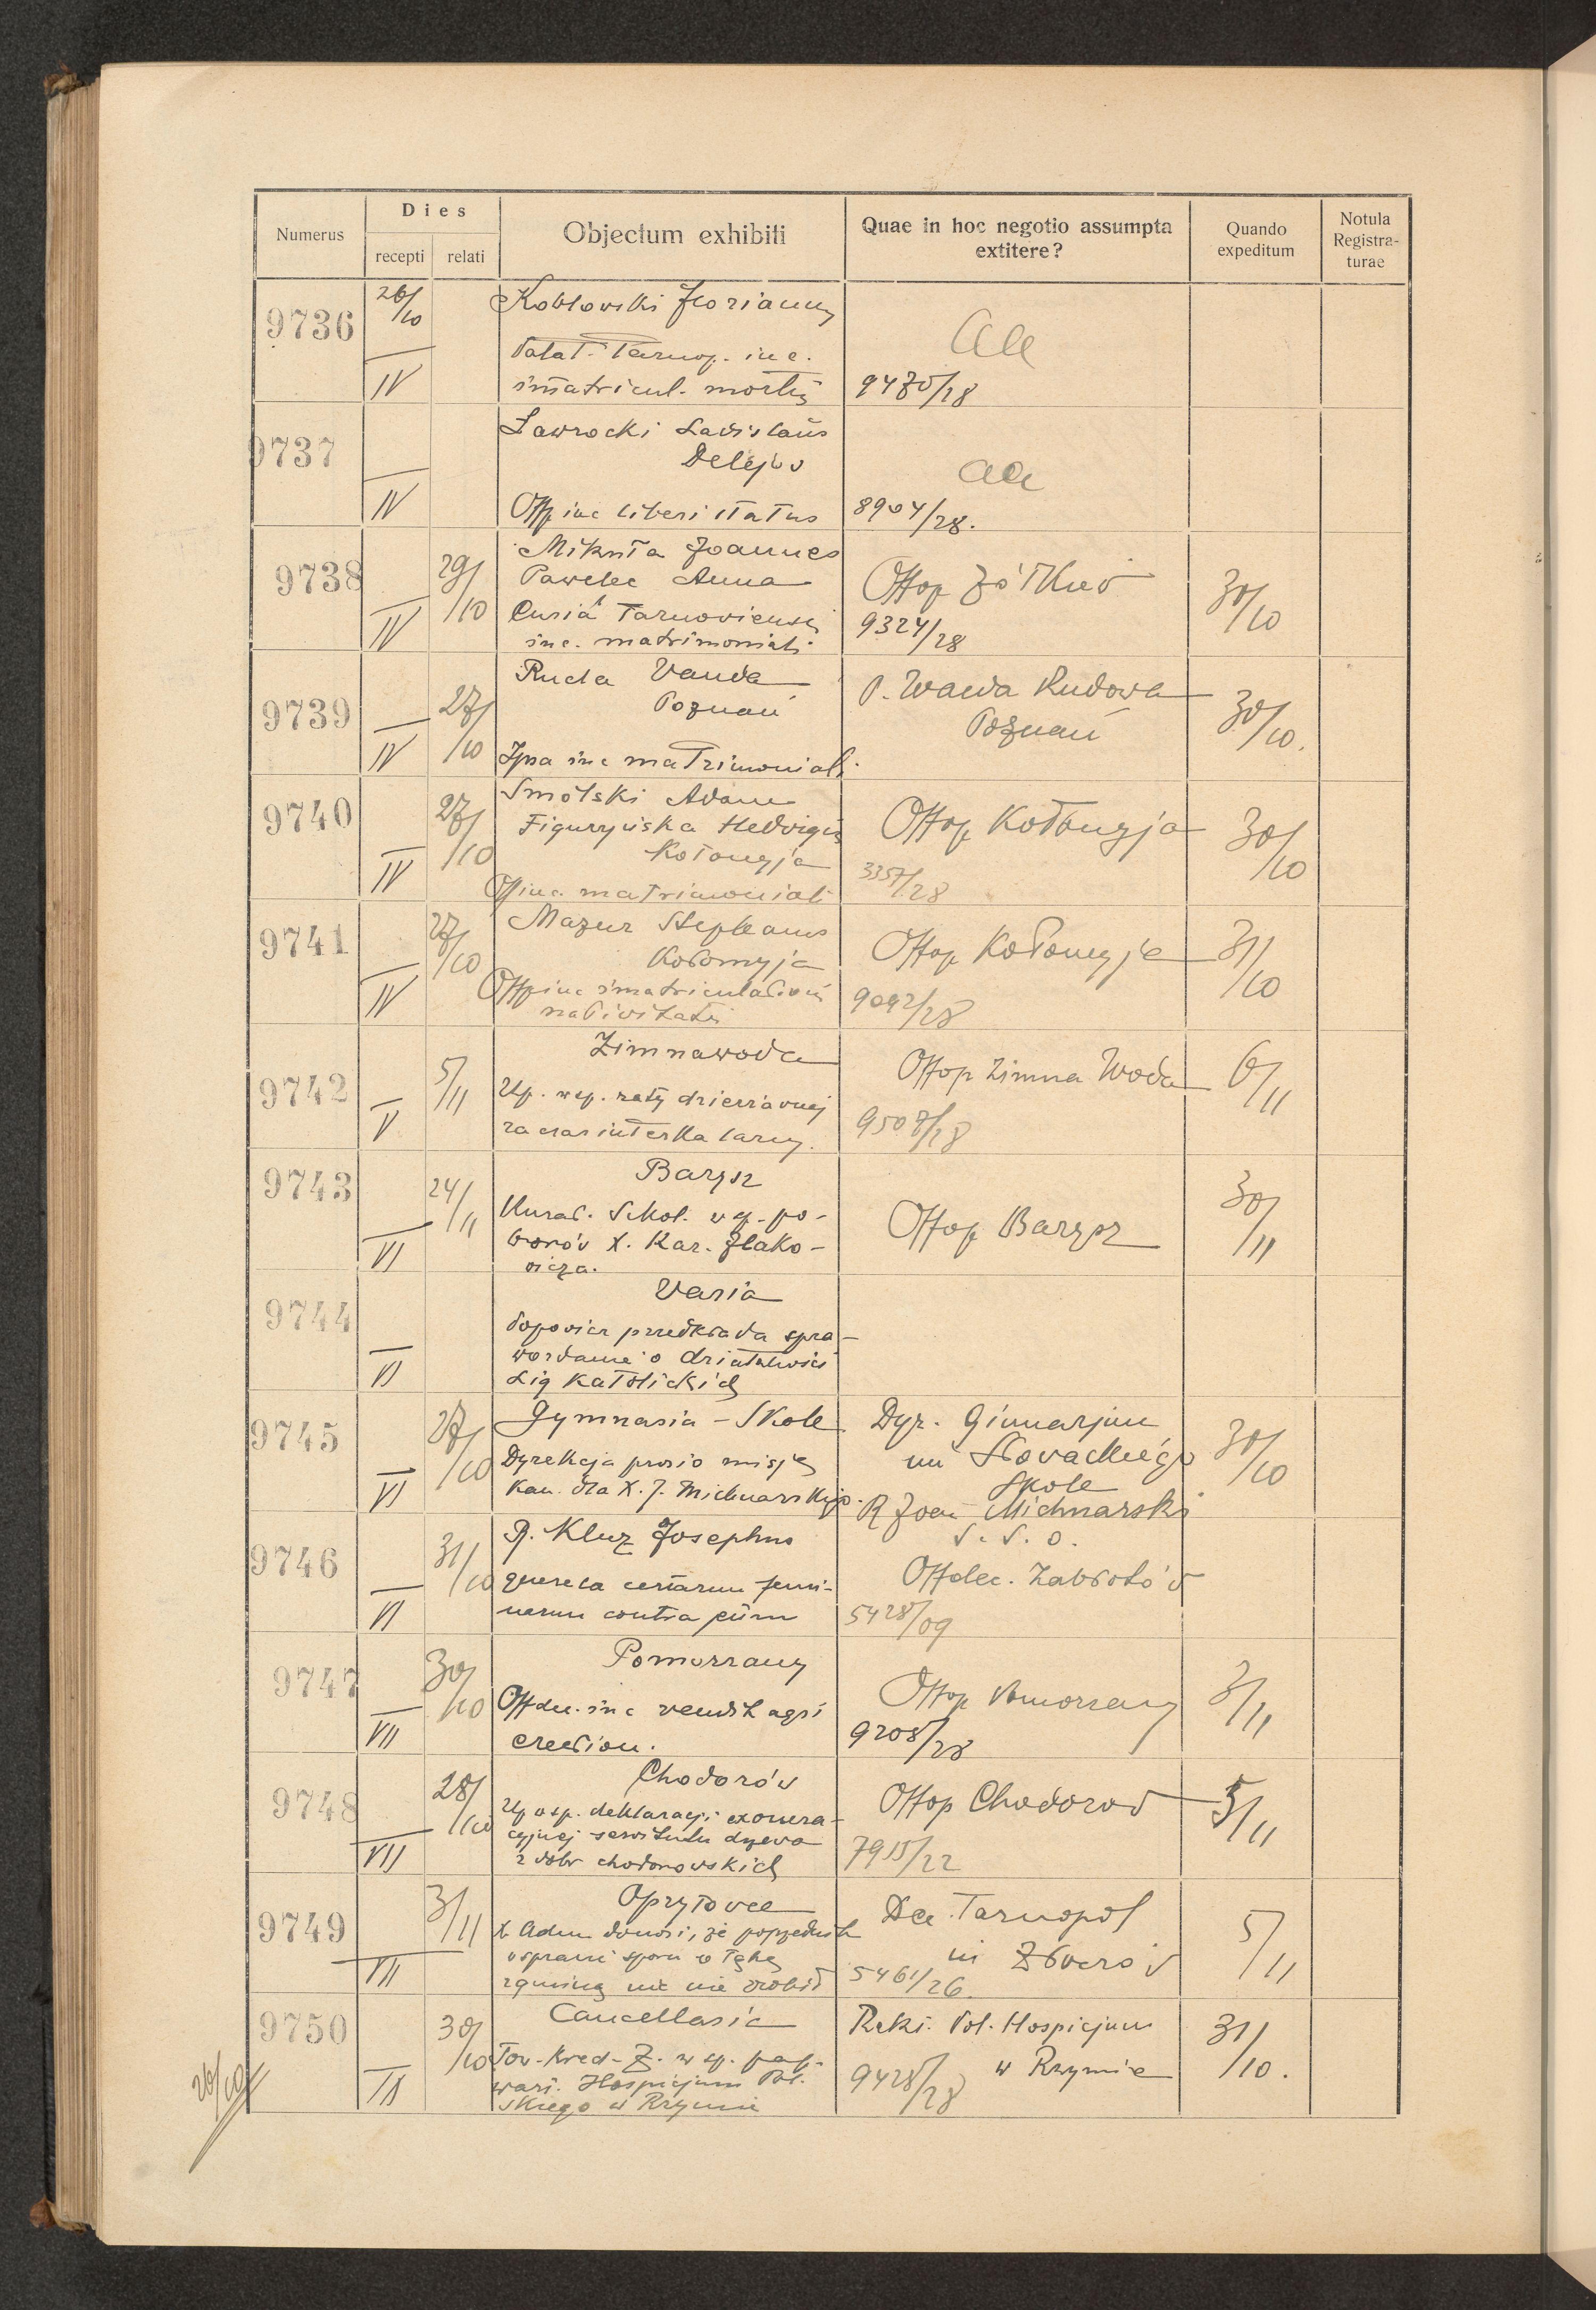 Numerus
Dies
recepti
relati
Objectum exhibiti
Quae in hoc negotio assumpta
extitere?
Quando
expeditum
Notula
Registra-
turae
9736
26/10
IV
Kobłowski
Palat. Tarnop. inc.
immatricul. mortis
9470/28
9737
IV
Ławrocki Ladislaus
Delejów
Offp inc liberi status
8904/28.
9738
29/10
IV
Mikuła Joannes
Pawelec Anna
Curia Tarnoviensis
inc. matrimoniali
Offop Żółkiew
9324/28
30/10
9739
27/10
IV
Ruda Vanda
Poznań
Ipsa inc matrimoniali
P. Wanda Rudowa
Poznań
30/10.
9740
27/10
IV
Smólski Adam
Figuryńska Hedvigis
Kołomyja
Offp inc. matrimoniali
Offop Kołomyja
3357/28
30/10
9741
27/10
IV
Mazur Stephanus
Kołomyja
Offp inc immatriculationis
nativitatis
Offop Kołomyja
9092/28
31/10
9742
5/11
V
Zimnawoda
Up. wsp. raty dzierżawnej
za czas interkalarny.
Offop Zimna Woda
9507/28
6/11
9743
24/11
VI
Barysz
Kurat. Szkol. w sp. po-
borów X. Kar.
Offop Barysz
30/11
9744
VI
Varia
przedkłada spra-
wozdanie o działalności
Lig Katolickich
9745
27/10
VI
Gymnasia - Skole
Dyrekcja prosi o misję
kan. dla X. J. Michnarskiego.
Dyr. Gimnazjum
im Słowackiego
Skole
R Joan Michnarski
S. S. O.
30/10
9746
31/10
VI
P. Kluz Josephus
querela certarum femi-
narum contra eum
Offdec. Zabłotów
5428/09
9747
30/10
VII
Pomorzany
Offdec. inc vendit agri
erection.
Offop Pomorzany
9208/28
3/11
9748
28/10
VII
Chodorów
Up wsp. deklaracji exonera-
cyjnej servitutu drzewa
z dóbr chodorowskich
Offop Chodorów
7915/22
5/11
9749
3/11
VII
Opryłowce
X Adm donosi, że poprzednik
w sprawie sporu o łąkę
z gminą nic nie zrobił
Dec Tarnopol
in Zborów
5461/26.
5/11
9750
30/10
IX
Cancellaria
Tow. Kred. Z. w sp.
Hospicjum Pol-
skiego w Rzymie
Rekt. Pol. Hospicjum
w Rzymie
9428/28
31/10.
26/10